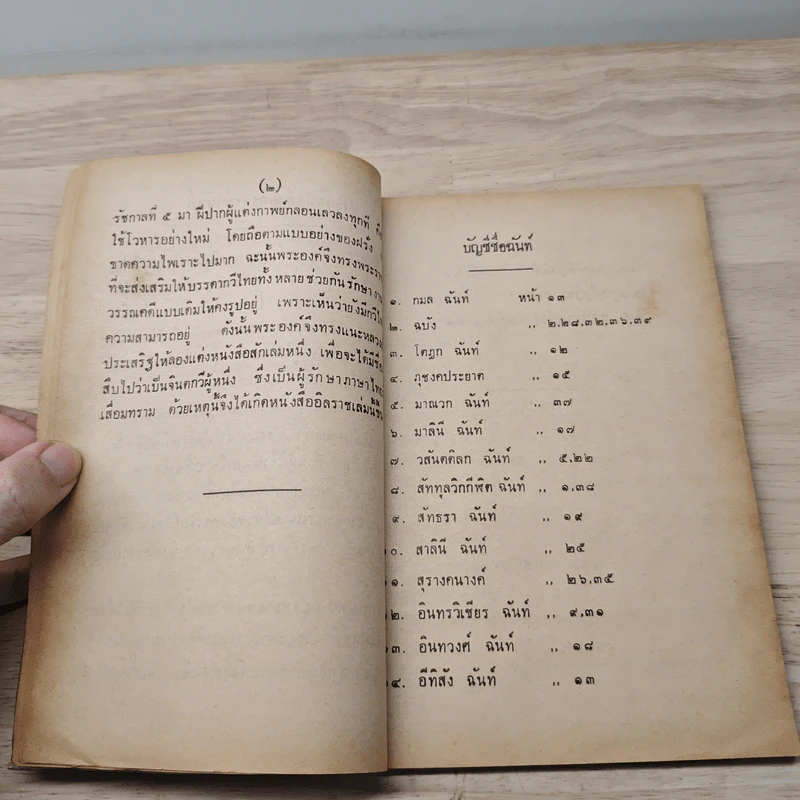 (๒)
รัชกาลที่ ๕ มา ฝีปากผู้แต่งกาพย์กลอนเลวลงทุกที
ใช้โวหารอย่างใหม่ โดยถือตามแบบอย่างของฝรั่ง
ขาดความไพเราะไปมาก ฉะนั้นพระองค์จึงทรงพระ
ที่จะส่งเสริมให้บรรดากวีไทยทั้งหลายช่วยกันรักษา
วรรณคดีแบบเดิมให้คงรูปอยู่ เพราะเห็นว่ายังมีกวี
ความสามารถอยู่ ดังนั้นพระองค์จึงทรงแนะหลวง
ประเสริฐให้ลองแต่งหนังสือสักเล่มหนึ่ง เพื่อจะได้มี
สืบไปว่าเป็นจินตกวีผู้หนึ่ง ซึ่งเป็นผู้รักษาภาษา
เสื่อมทราม ด้วยเหตุนี้จึงได้เกิดหนังสืออิลราชเล่มนี้
บัญชีชื่อฉันท์
๑. กมล ฉันท์ หน้า ๑๓
๒. ฉบัง ,, ๒,๒๘,๓๒,๓๖,๓๙
๓. โตฎก ฉันท์ ,, ๑๒
๔. ภุชงคประยาต ,, ๑๕
๕. มาณวก ฉันท์ ,, ๓๗
๖. มาลินี ฉันท์ ,, ๑๗
๗. วสันตติลก ฉันท์ ,, ๕,๒๒
๘. สัททุลวิกกีฬิต ฉันท์ ,, ๑,๓๘
๙. สัทธรา ฉันท์ ,, ๑๙
๑๐. สาลินี ฉันท์ ,, ๒๕
๑๑. สุรางคนางค์ ,, ๒๖,๓๕
๑๒. อินทรวิเชียร ฉันท์ ,, ๙,๓๑
๑๓. อินทวงศ์ ฉันท์ ,, ๑๘
๑๔. อีทิสัง ฉันท์ ,, ๑๓